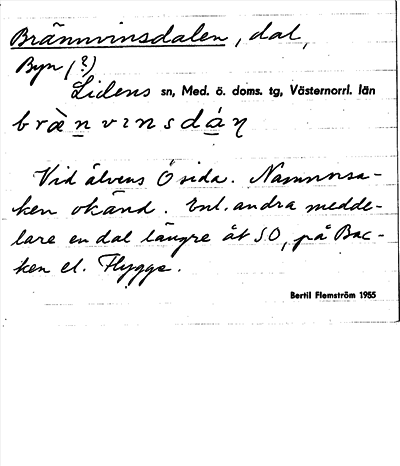 Brännvinsdalen, dal,
Byn (?)
Lidens sn, Med. ö. doms. tg, Västernorrl. län
brὰn̲vɪnsdá̲ƞ
Vid älvens Ö sida. Namnorsa-
ken okänd. Enl. andra medde-
lare en dal längre åt SO, på Bac-
ken el. Flygge.
Bertil Flemström 1955